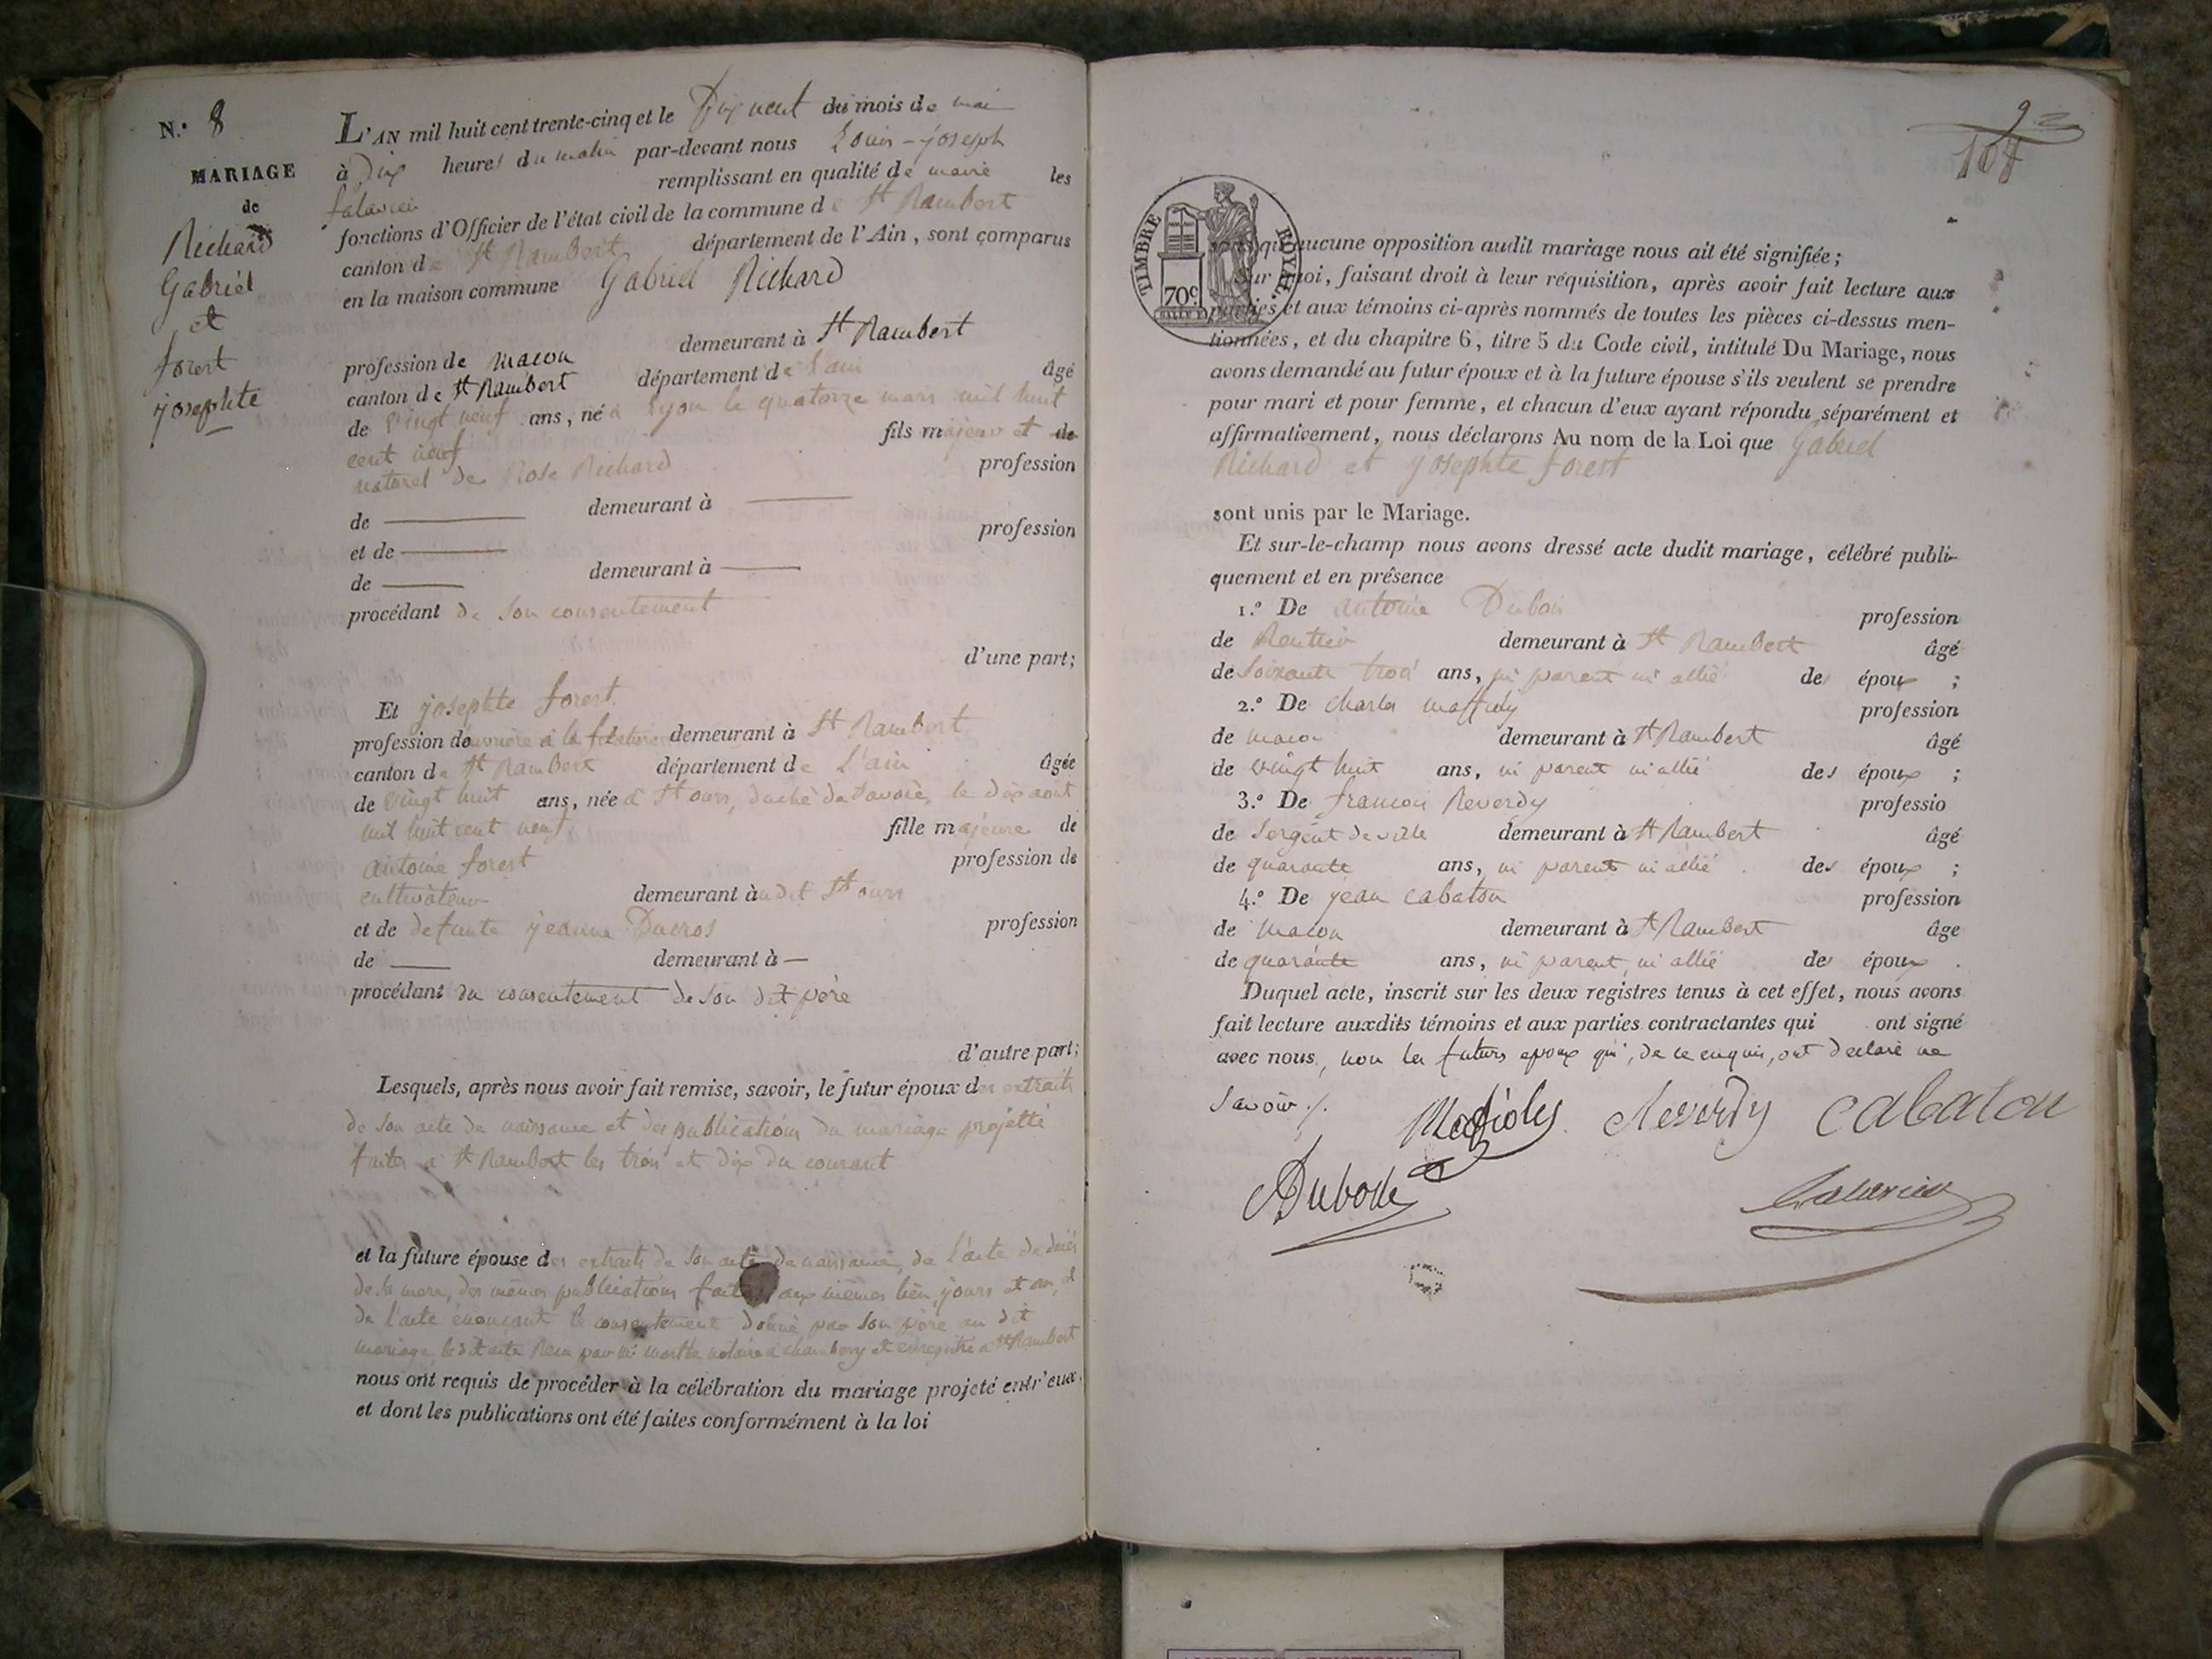 N.º 8
MARIAGE
de
Richard
Gabriel
et
forest
josephte
L'AN mil huit cent trente-cinq et le Dix neuf du mois de mai
à Dix heures du matin par-devant nous Louis-joseph
remplissant en qualité de maire les
fonctions d'Officier de l'état civil de la commune de St Rambert
canton de St Rambert département de l'Ain, sont comparus
en la maison commune Gabriel Richard
demeurant à St Rambert
profession de macon
canton de St Rambert département de l'ain âgé
de vingt neuf ans, né à Lyon le quatorze mars mil huit
cent neuf fils majeur et de
naturel de Rose Richard profession
de demeurant à
et de profession
de demeurant à
procédant de son consentement
d'une part;
Et josephte forest
profession d'ouvrière à la demeurant à St Rambert
canton de St Rambert département de L'ain âgée
de vingt huit ans, née à St ours, duché de Savoie, le dix aout
mil huit cent neuf fille majeure de
antoine forest profession de
cultivateur demeurant audit St ours
et de defunte jeanne Ducros profession
de demeurant à
procédant du consentement de son dit père
d'autre part;
Lesquels, après nous avoir fait remise, savoir, le futur époux des extraits
de son acte de naissance et des publications du mariage projetté
faites à St Rambert les trois et dix du courant
et la future épouse des extraits de son acte de naissance, de l'acte de décès
de sa mere, des mêmes publications faites aux mêmes lieu, jours et an, et
de l'acte énonçant le consentement donné par son père au dit
mariage, ledit acte recu par me notaire à chambery et enregistré à St Rambert
nous ont requis de procéder à la célébration du mariage projeté entr'eux
et dont les publications ont été faites conformément à la loi
92
TIMBRE ROYAL
70c
sans qu'aucune opposition audit mariage nous ait été signifiée;
Sur quoi, faisant droit à leur réquisition, après avoir fait lecture aux
parties et aux témoins ci-après nommés de toutes les pièces ci-dessus men-
tionnées, et du chapitre 6, titre 5 du Code civil, intitulé Du Mariage, nous
avons demandé au futur époux et à la future épouse s'ils veulent se prendre
pour mari et pour femme, et chacun d'eux ayant répondu séparément et
affirmativement, nous déclarons Au nom de la Loi que Gabriel
Richard et josephte forest
sont unis par le Mariage.
Et sur-le-champ nous avons dressé acte dudit mariage, célébré publi-
quement et en présence
1.º De antoine Dubois profession
de Rentier demeurant à St Rambert âgé
de soixante trois ans, ni parent ni allié des époux ;
2.º De charles profession
de macon demeurant à St Rambert âgé
de vingt huit ans, ni parent ni allié des époux ;
3.º De francois Reverdy professio
de Sergent de ville demeurant à St Rambert âgé
de quarante ans, ni parent ni allié des époux ;
4.º De jean cabaton profession
de macon demeurant à St Rambert âge
de quarante ans, ni parent, ni allié des époux .
Duquel acte, inscrit sur les deux registres tenus à cet effet, nous avons
fait lecture auxdits témoins et aux parties contractantes qui ont signé
avec nous, non les futurs epoux qui, de ce enquis, ont declaré ne
savoir ./.
Reverdy Cabaton